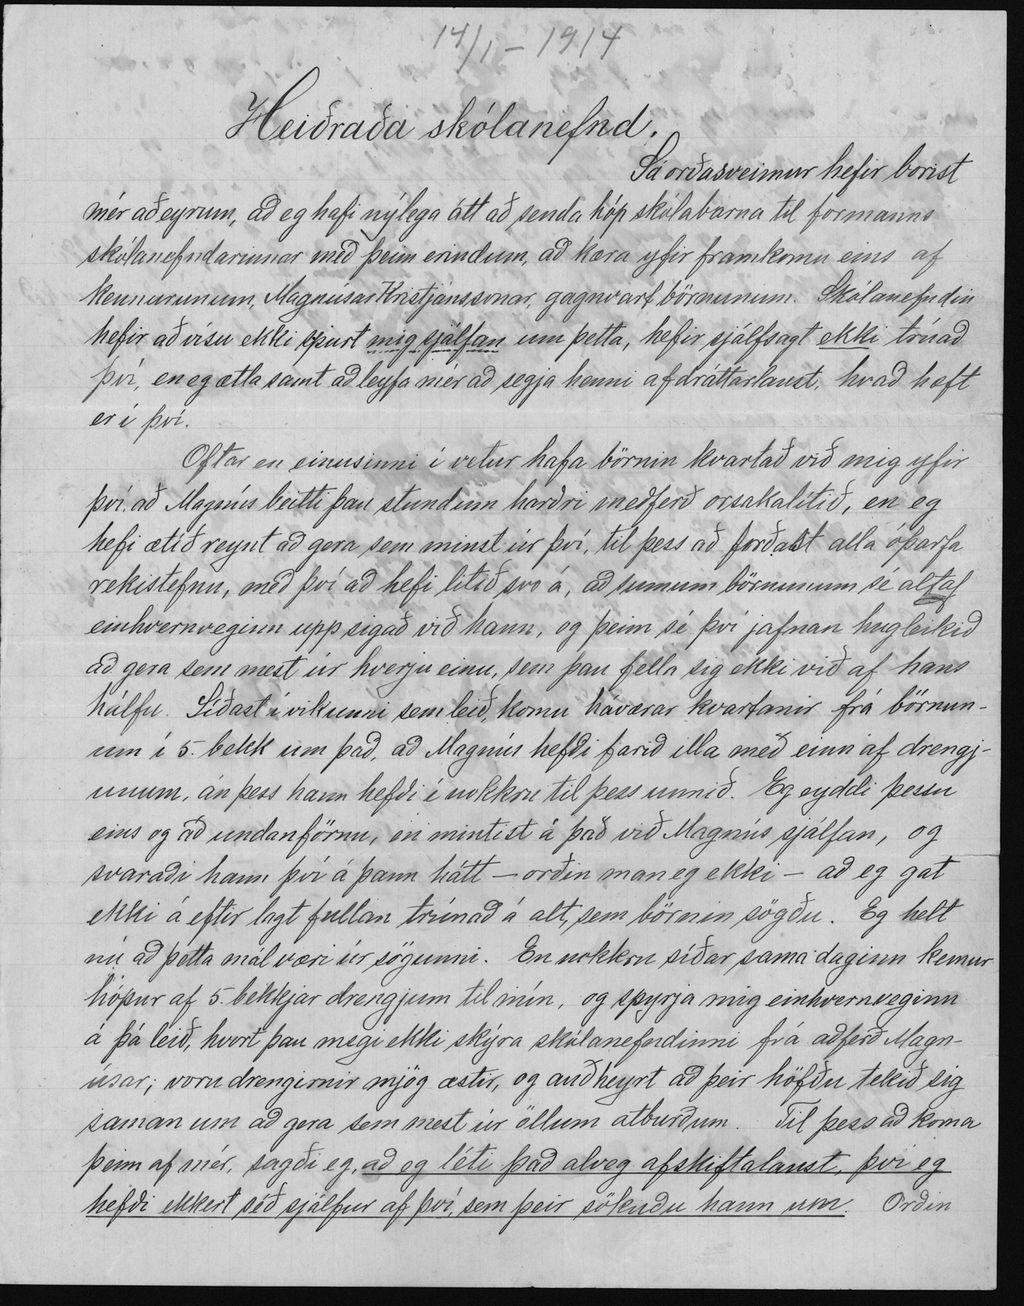 14/1 - 1914
Heiðraða skólanefnd.
Sá orðasveimur hefir borist
mér að eyrum, að eg hafi nýlega átt að senda hóp skólabarna til formanns
skólanefndarinnar með þeim erindum, að kæra yfir framkomu eins af
kennurunum, Magnúsar Kristjánssonar, gagnvart börnunum. Skólanefndin
hefir að vísu ekki spurt mig sjálfan um þetta, hefir sjálfsagt ekki trúað
því, en eg ætla samt að leyfa mér að segja henni afdráttarlaust, hvað hæft
er í því.
Oftar en einusinni í vetur hafa börnin kvartað við mig yfir
því, að Magnús beitti þau stundum harðri meðferð orsakalítið, en eg
hefi ætíð reynt að gera sem minst úr því, til þess að forðast alla óþarfa
rekistefnu, með því að hefi litið svo á, að sumum börnunum sé altaf
einhvernveginn upp sigað við hann, og þeim sé því jafnan hugleikið
að gera sem mest úr hverju einu, sem þau fella sig ekki við af hans
hálfu. Síðast í vikunni sem leið, komu háværar kvartanir frá börnun-
um í 5. bekk um það, að Magnús hefði farið illa með einn af drengj-
unum, án þess hann hefði í nokkru til þess unnið. Eg eyddi þessu
eins og að undanförnu, en mintist á það við Magnús sjálfan, og
svaraði hann því á þann hátt - orðin man eg ekki - að eg gat
ekki á eftir lagt fullan trúnað á alt, sem börnin sögðu. Eg helt
nú að þetta mál væri úr sögunni. En nokkru síðar sama daginn kemur
hópur af 5. bekkjar drengjum til mín, og spyrja mig einhvernveginn
á þá leið, hvort þau megi ekki skýra skólanefndinni frá aðferð Magn-
úsar; voru drengirnir mjög æstir, og auðheyrt að þeir höfðu tekið sig
saman um að gera sem mest úr öllum atburðum. Til þess að koma
þeim af mér, sagði eg, að eg léti það alveg afskiftalaust, því eg
hefði ekkert séð sjálfur af því, sem þeir sökuðu hann um. Orðin